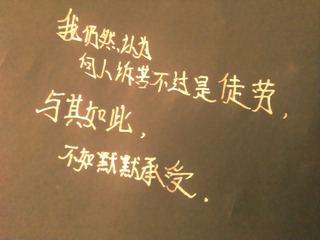 我仍然认为
向人诉苦不过是徒劳，
与其如此，
不如默默承受．